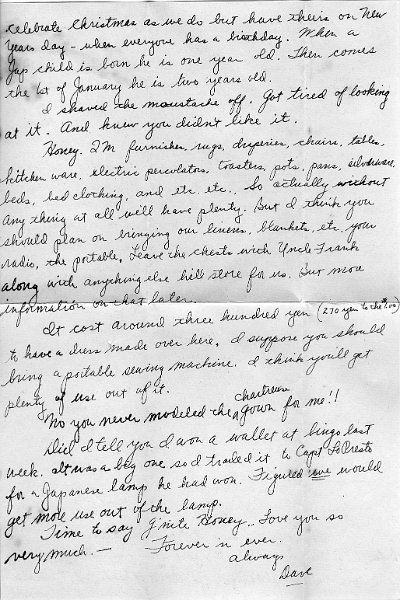 celebrate Christmas as we do but have theirs on New
Years day - when everyone has a birthday. When a
Jap child is born he is one year old. Then comes
the 1st of January he is two years old.
I shaved the moustache off. Got tired of looking
at it. And knew you didn't like it.
Honey. QM furnishes rugs, draperies, chairs, tables,
kitchen ware, electric percolators, toasters, pots, pans, silverware,
beds, bed clothing, and etc. etc.. So actually without
any thing at all we'll have plenty. But I think you
should plan on bringing our linens, blankets, etc. your
radio, the portable, Leave the chests with Uncle Frank
along with anything else he'll store for us. But more
information on that later.
It cost around three hundred yen (270 yen to the $1.00)
to have a dress made over here, I suppose you should
bring a portable sewing machine. I think you'll get
plenty of use out of it.
No you never modeled the chartreuse gown for me!!
Did I tell you I won a wallet at bingo last
week. It was a big one so I traded it to Capt LoPresto
for a Japanese lamp he had won. Figured we would
get more use out of the lamp.
Time to say G'nite Honey.. Love you so
very much. — Forever 'n ever.
always
Dave